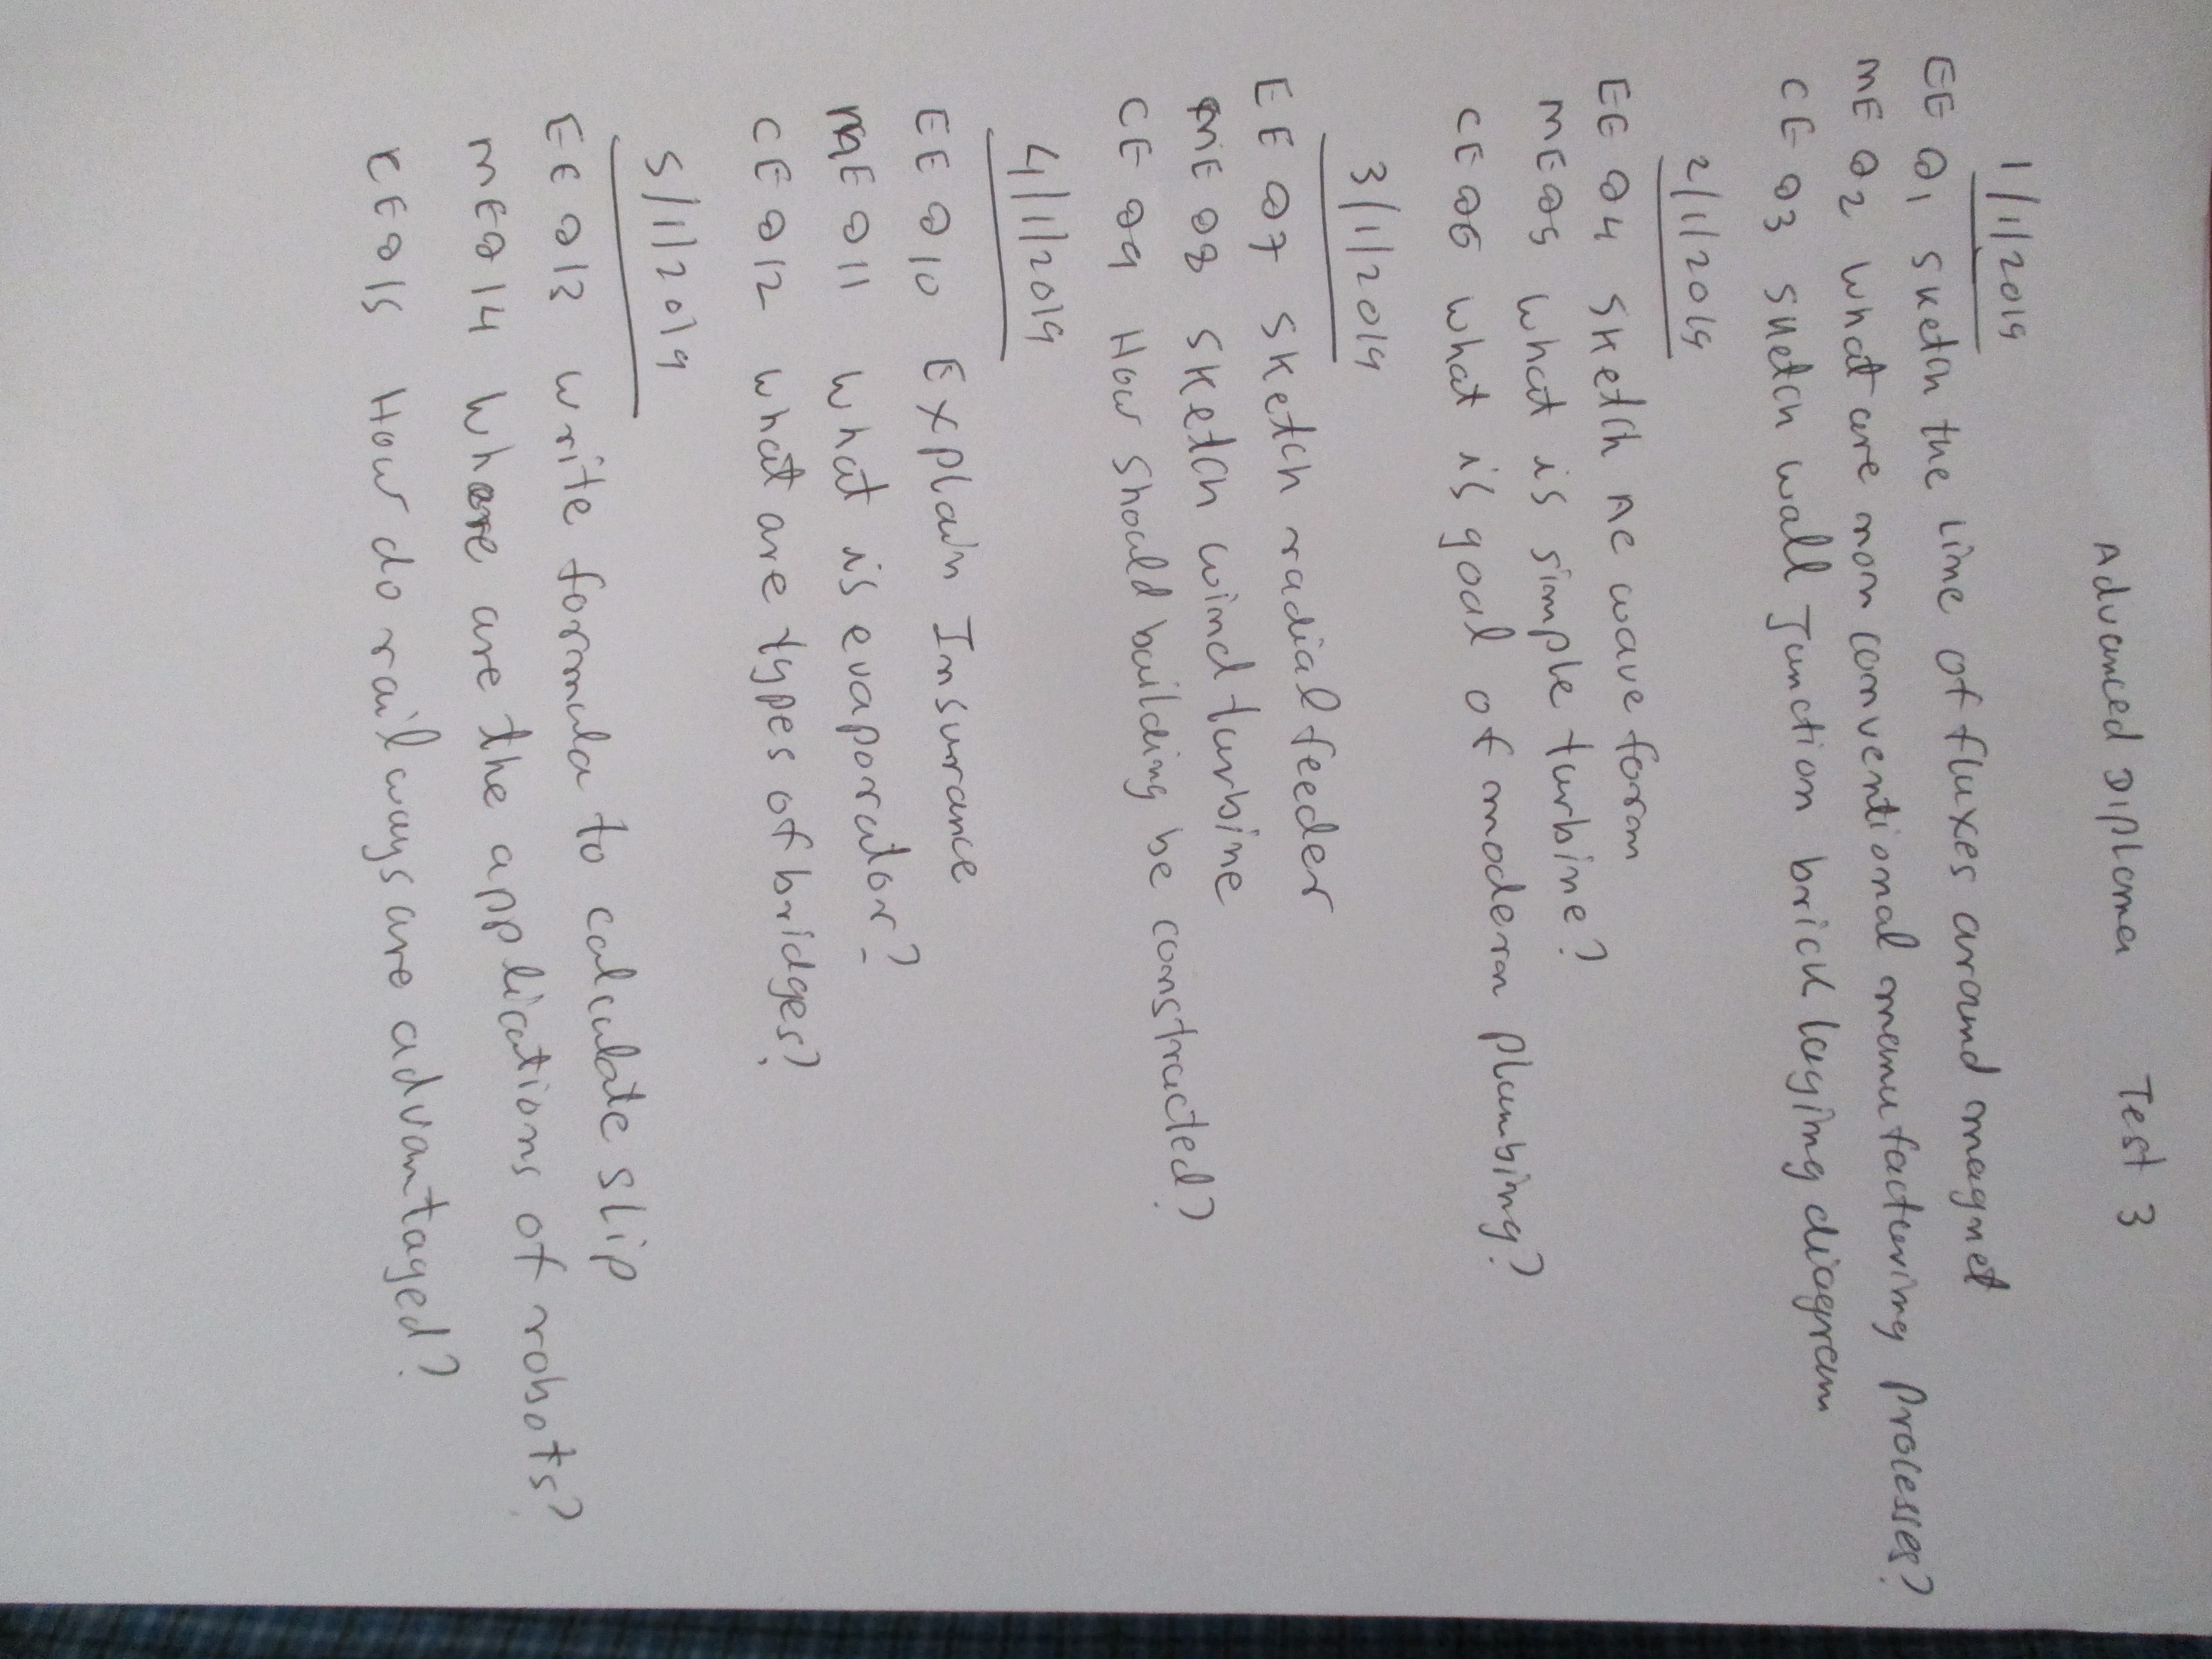 Advanced Diploma Test 3
1/1/2019
EE Q1 sketch the line of fluxes around magnet
ME Q2 what are non conventional manufacturing processes?
CE Q3 sketch wall Junction brick laying diagram
2/1/2019
EE Q4 sketch AC wave form
ME Q5 what is simple turbine?
CE Q6 what is goal of modern plumbing?
3/1/2019
EE Q7 sketch radial feeder
ME Q8 sketch wind turbine
CE Q9 How should building be constructed?
4/1/2019
EE Q10 Explain Insurance
ME Q11 what is evaporator?
CE Q12 what are types of bridges?
5/1/2019
EE Q13 write formula to calculate slip
ME Q14 where are the applications of robots?
CE Q15 How do railways are advantaged?